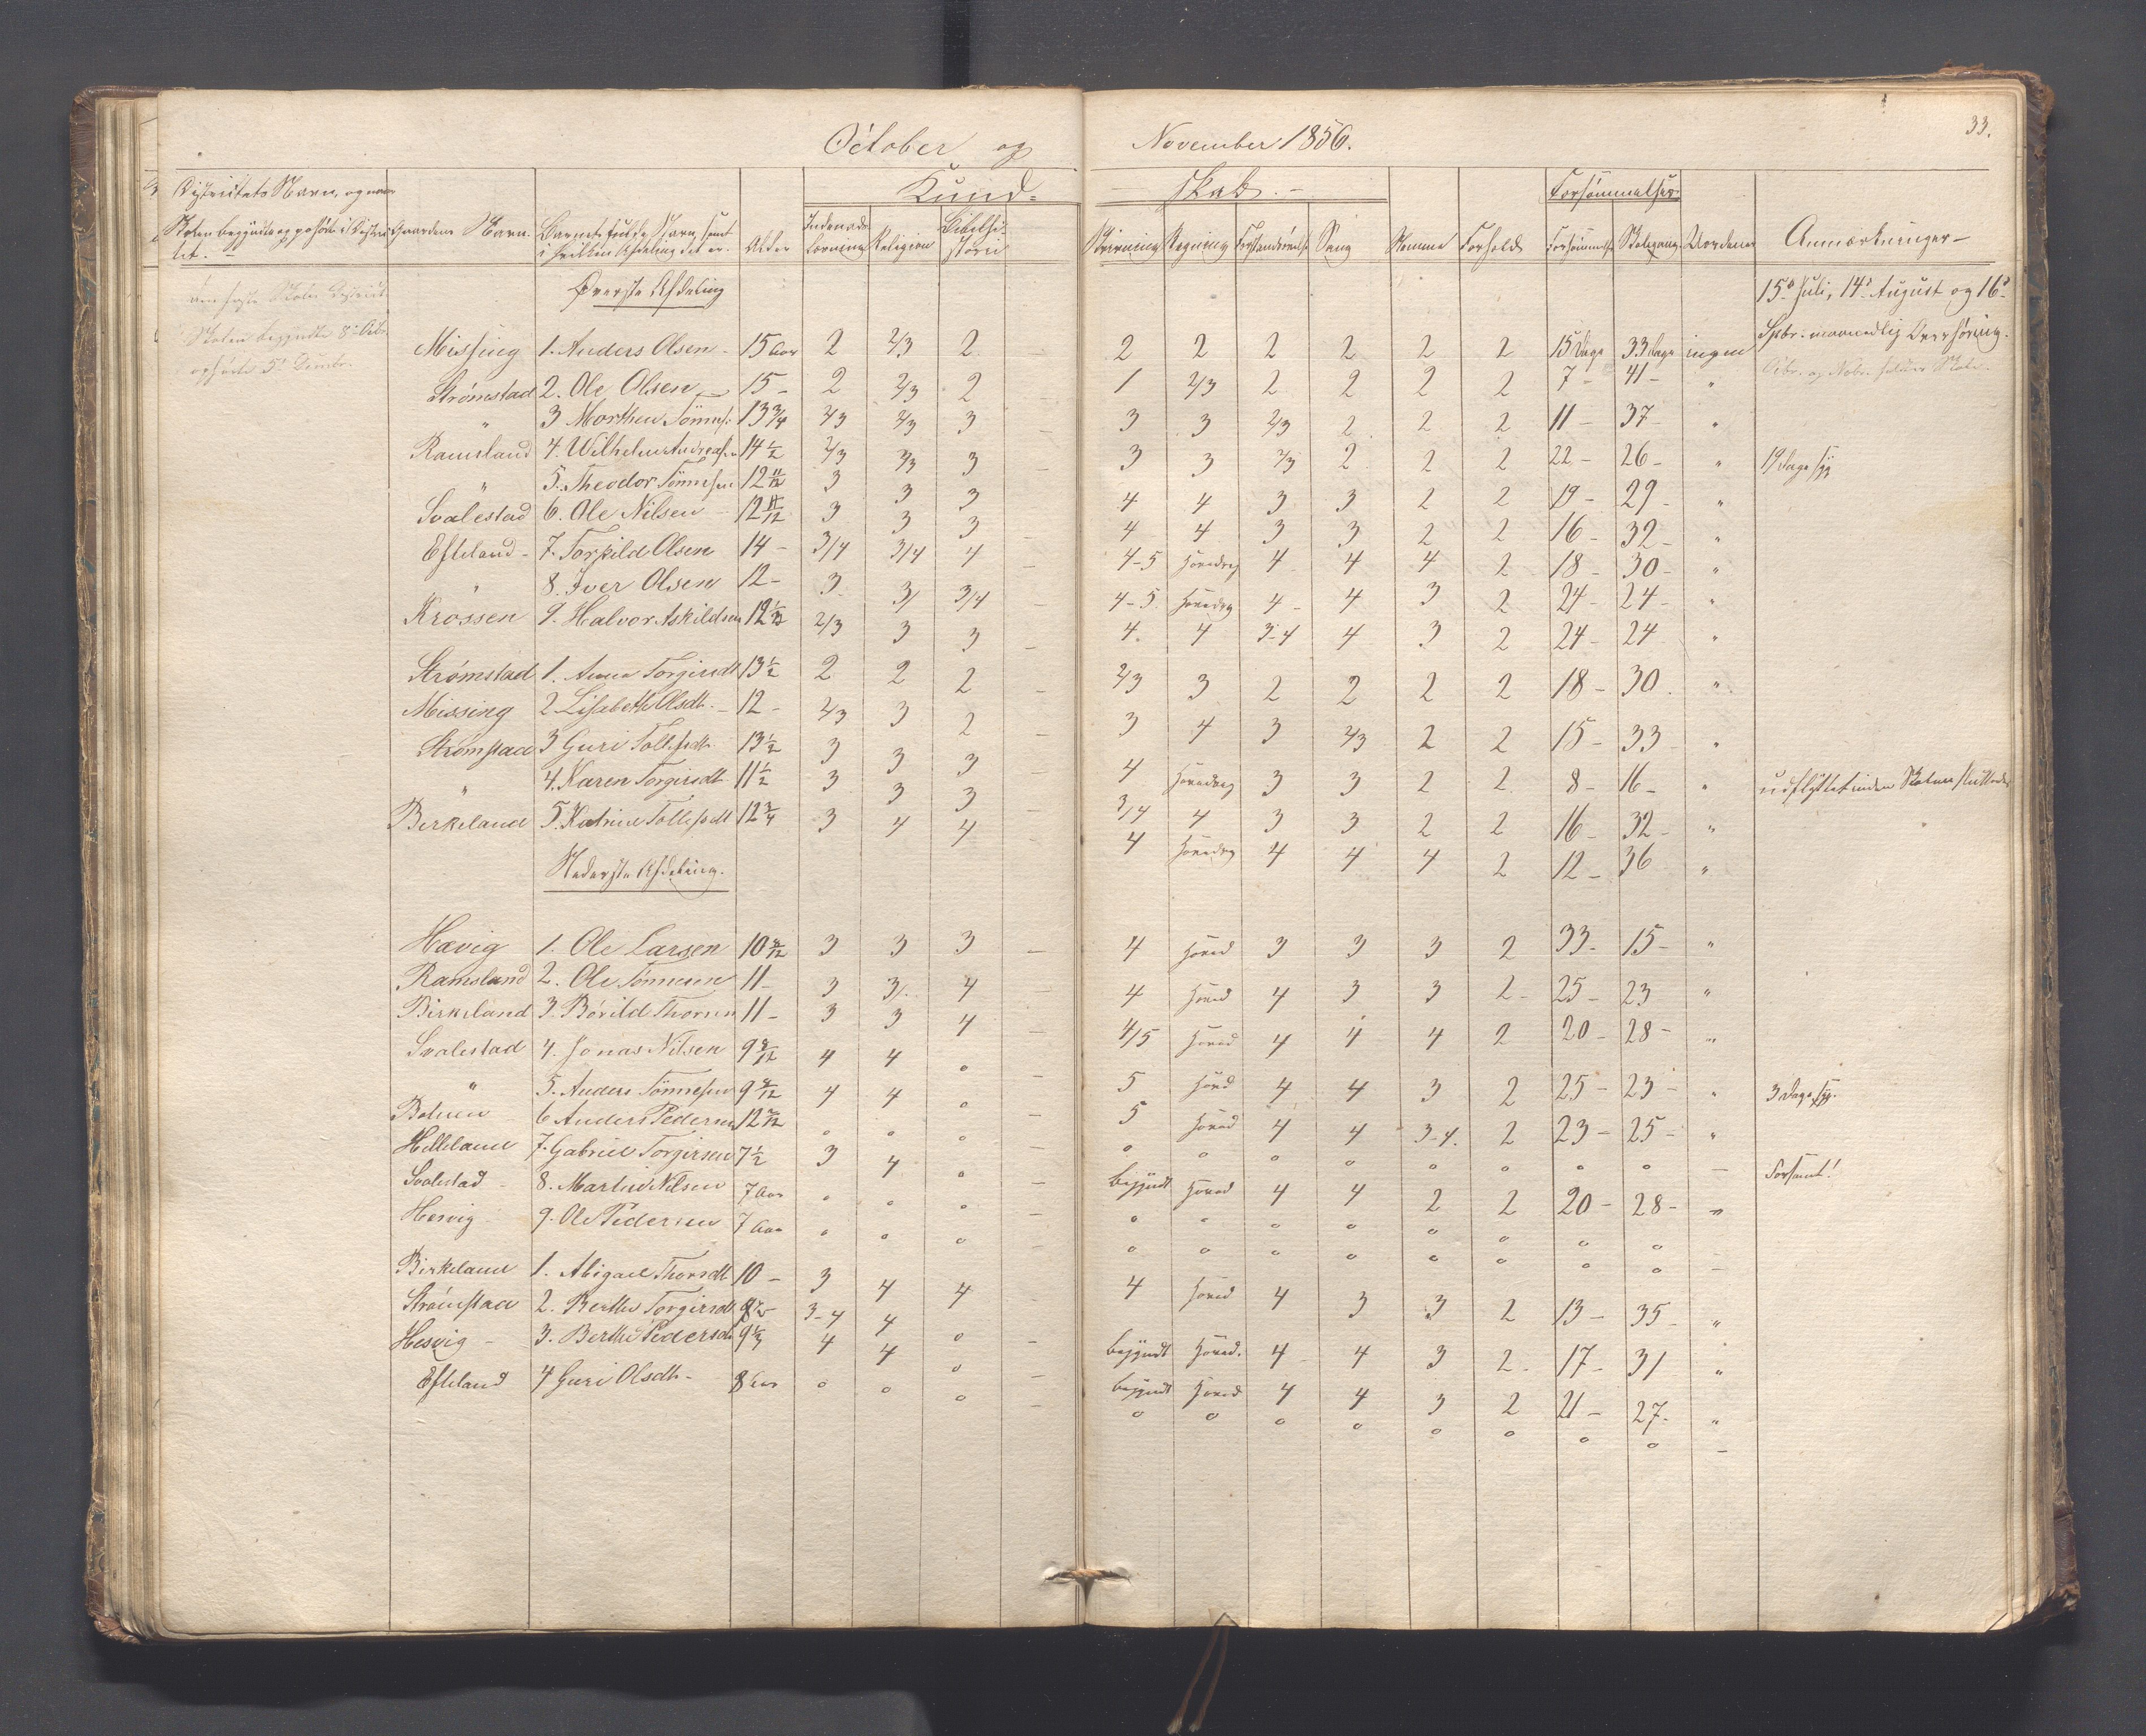 October og November 1856.
33.
Districtets Navn, og naar Skolen begyndte og ophørte i Districtet. Gaardens Navn. Barnets fulde Navn, samt i hvilken Afdeling det er. Alder Kundskab.- Indenadslæsning Religion Bibelhistorie Skrivning Regning Forstandsøvelse Sang Nemme Forhold Forsømmelser Forsømmelse Skolegang Uordener Anmærkninger-
Øverste Afdeling
15d Juli, 14d August og 16d
Spbr. maanedlig Overhøring.
Skolen begyndte 8d Octbr.
ophørte 5d Decmbr.
Octbr. og Novbr. holdes Skole.
Missing 1. Anders Olsen - 15 Aar 2 2/3 2 2 2 2 2 2 2 15 Dage 33 Dage ingen
Strømstad 2. Ole Olsen 15 - 2 2/3 2 - 1 2/3 2 2 2 2 7 - 41 - "
" 3 Morthen Tönnes: 13 3/4 2/3 2/3 3 - 3 3 2/3 2 2 2 11 - 37 - "
Ramsland 4. Wilhelm Andreasen 14 1/2 2/3 2/3 3 - 3 3 2/3 2 2 2 22 - 26 - " 19 Dage syg
" 5. Theodor Tönnesen 12 11/12 3 3 3 4 4 3 3 2 2 19 - 29 - "
Svalestad 6. Ole Nilsen - 12 11/12 3 3 3 - 4 4 3 3 2 2 16 - 32 - "
Efteland - 7. Torkild Olsen 14 - 3/4 3/4 4 - 4-5 Hovedrg 4 4 4 2 18 - 30 - "
" 8. Iver Olsen 12 - 3 3/ 3/4 - 4-5. Hovedrg 4 - 4 3 2 24 - 24 - "
Krossen 9. Halvor Askildsen 12 1/2 2/3 3 3 - 4. 4 3-4 4 3 2 24 - 24 "
Strømstad 1. Anna Torgirsdt 13 1/2 2 2 2 - 2/3 3 2 2 2 2 18 - 30. "
Missing 2 Lisabeth Olsdt. - 12 - 2/3 3 2 - 3 4 3 2/3 2 2 15 - 33 "
Strømstad 3 Guri Tollefsdt 13 1/2 3 3 3 - 4 Hovedrg 3 3 2 2 8 - 16 - " udflyttet inden Skolen sluttede
" 4. Karen Torgirsdt 11 1/2 3 3 3 - 3/4 4 3 3 2 2 16 - 32 - "
Berkeland 5. Katrine Tollefsdt 12 3/4 3 4 4 - 4 Hovedrg 4 4 4 2 12 - 36 "
Nederste Afdeling.
Hævig 1. Ole Larsen 10 8/12 3 3 3 - 4 Hoved 3 3 3 2 33 - 15 - "
Ramsland 2. Ole Tönnesen 11 - 3 3/. 4 - 4 Hoved 4 3 3 2 - 25 - 23 "
Birkeland 3. Börild Thorsen 11 - 3 3 4 - 4/5 Hoved 4 4 4 2 20 - 28 - "
Svalestad 4. Jonas Nilsen 9 8/12 4 4 o - 5 Hovd 4 4 3 2 25 - 23 - " 3 Dage syg.
" 5. Anders Tönnesen 9 8/12 4 4 o - 5 Hoved 4 4 3-4. 2 23 - 25 - "
6 Anders Pedersen 12 o o o - o o o o o o o o - Forsømt!
Helleland 7. Gabriel Torgirsen 7 1/2 3 4 o - begyndt Hoved 4 4 2 2 20 - 28 - "
Svalestad - 8. Martin Nilsen 7 Aar o o o - o o o o o o o o
Hesvig - 9. Ole Pedersen 7 Aar o o o - o o o o o o o o -
Birkeland 1. Abigael Thorsdt 10 - 3 4 4 - 4 Hoved 4 3 3 2 13 - 35 - "
Strömstad 2. Berthe Torgirsdt 3-4 4 o - begyndt Hoved. 4 - 4 3 2. 17 - 31 "
Hesvig - 3. Berthe Pedersdt 9 1/2 4 4 o - begyndt Hoved 4 4 3 2 21 - 27 - "
Efteland 4 Guri Olsdt - 8 Aar o o o - o o o o o o o o -